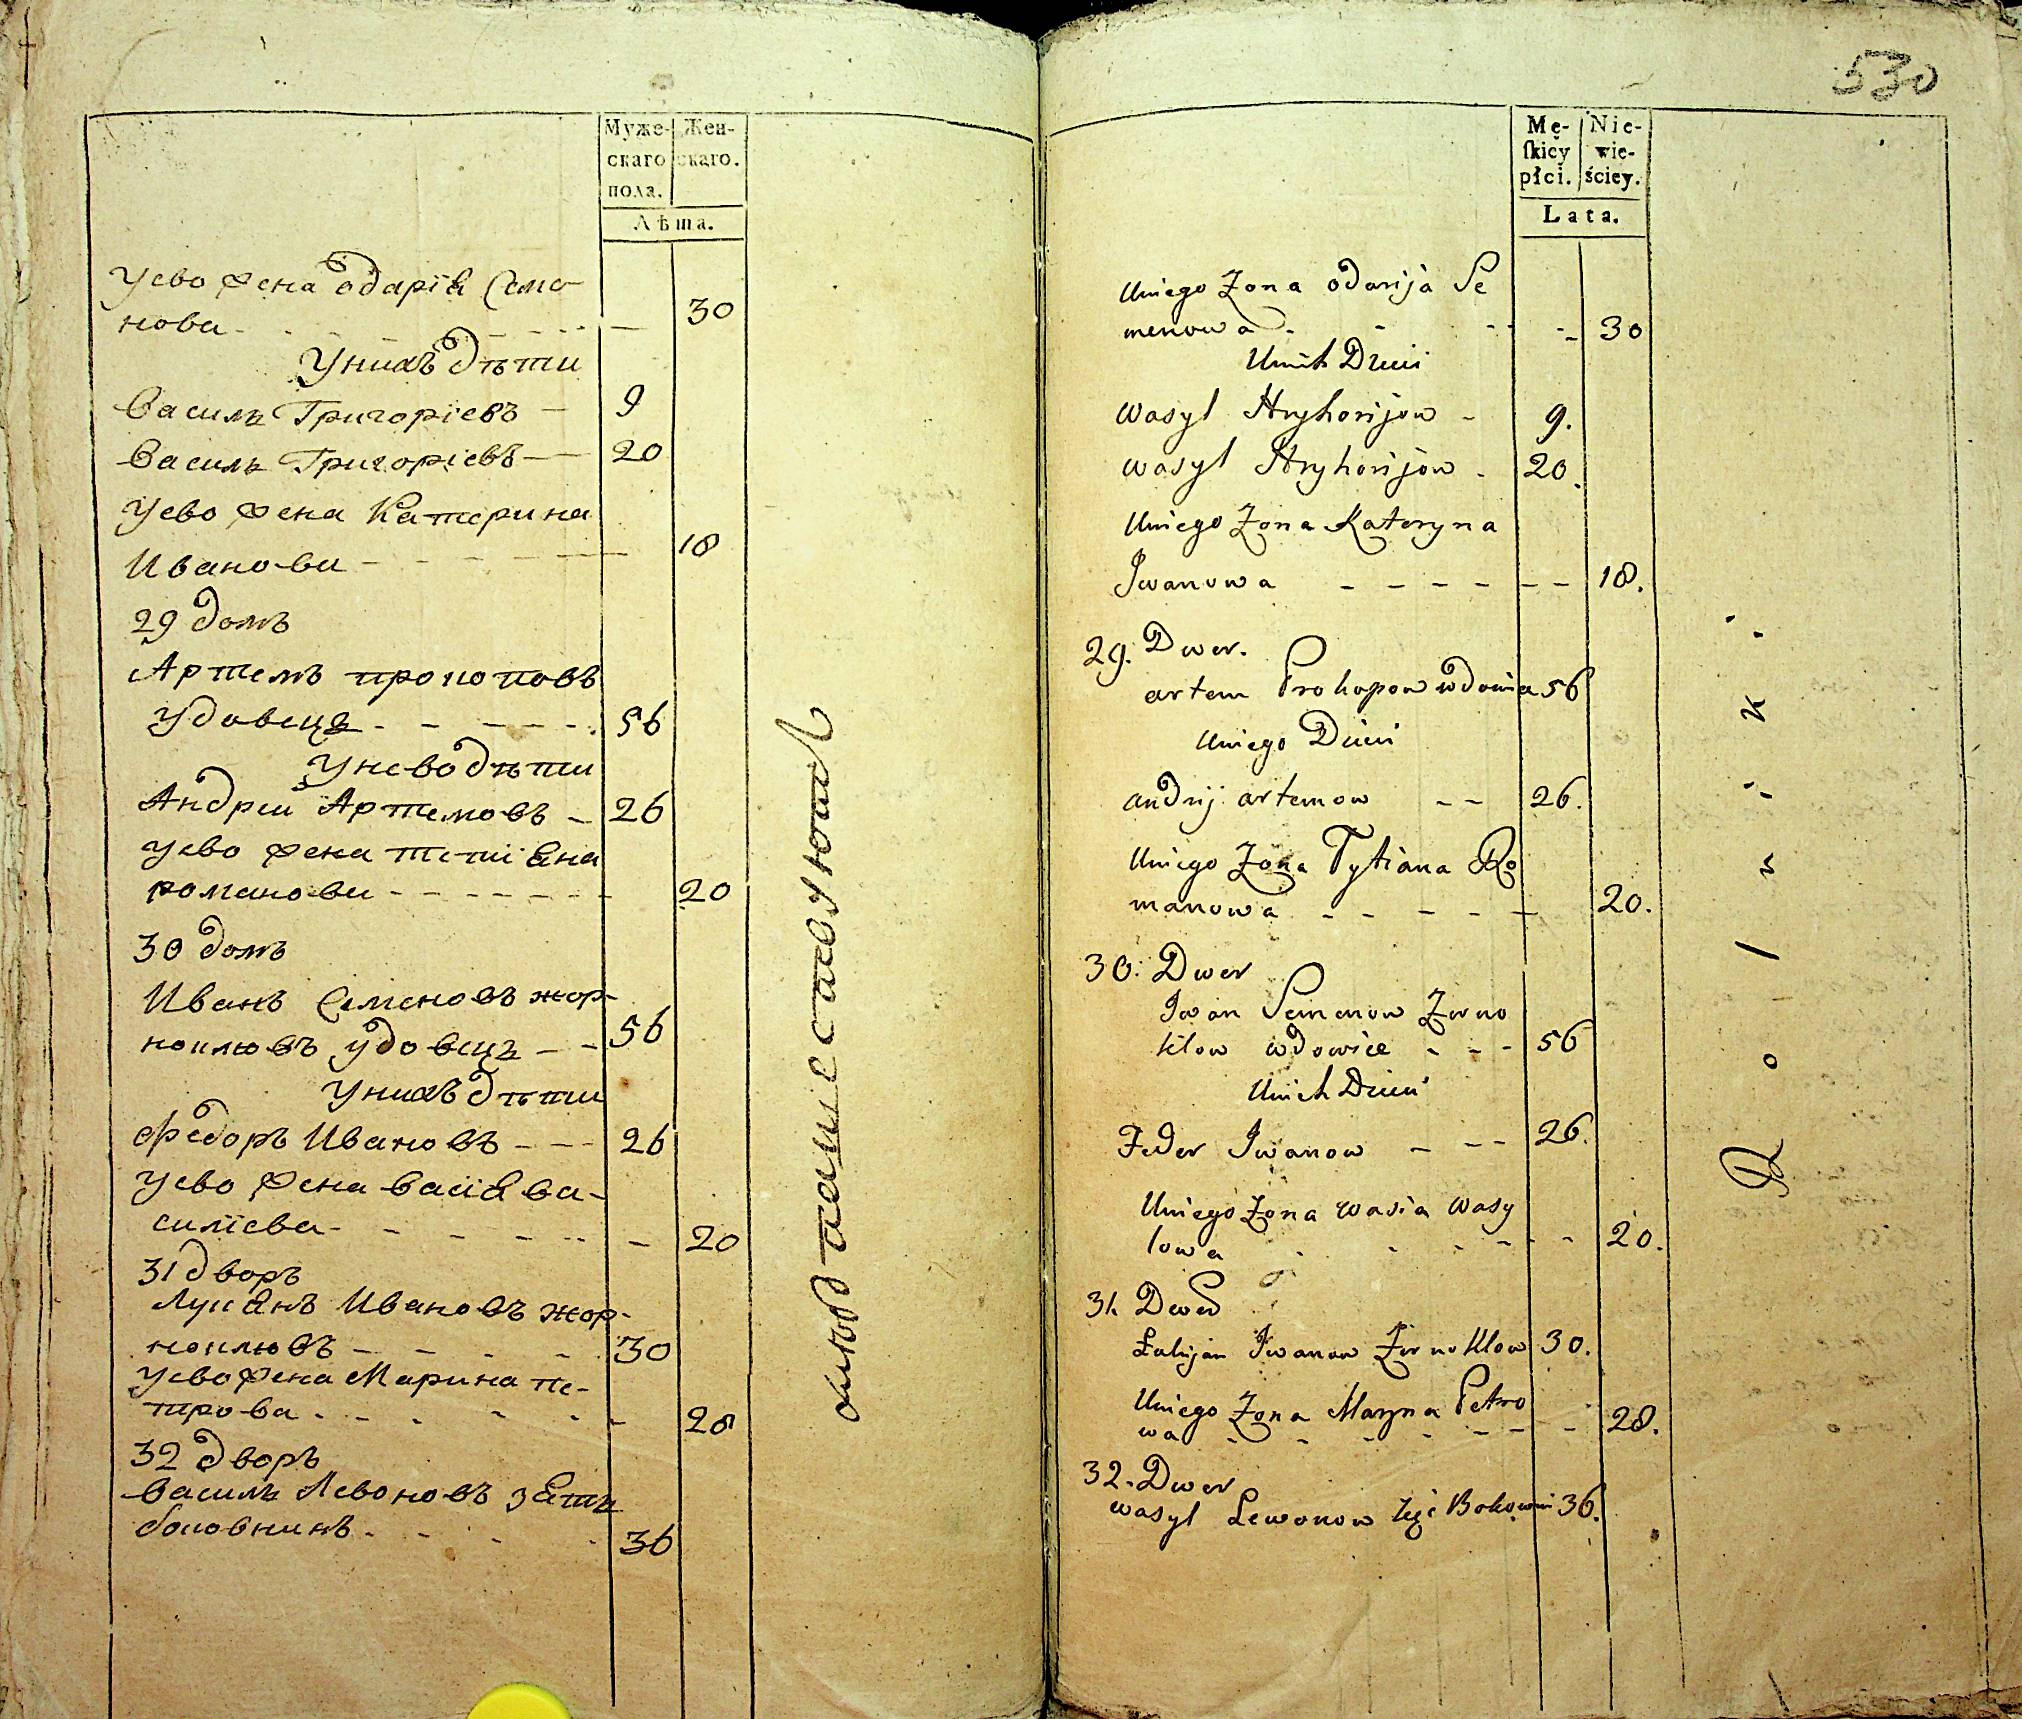 Муже-
скаго
пола.
Жен-
скаго.
Лѣта.
Уево жена Одаріѧ Семе-
нова - - - - - - 30
Унихъ дѣти
Василь Григоріевъ - 9
Василь Григоріевъ - 20
Уево жена Катерина
Иванова - - - - - 18
29 домъ
Артемъ прокоповъ
удовець - - - - - 56
Унево дѣти
Андрей Артемовъ - 26
Уево жена тетиѧна
романова - - - - - - - 20
30 домъ
Иванъ Семеновъ жор-
ноклювъ удовець - - 56
Унихъ дѣти
Федоръ Ивановъ - - - 26
Уево жена васиѧ ва-
силїева - - - - - - 20
31 дворъ
Лукѧнъ Ивановъ жор-
ноклювъ - - - - 30
Уево жена Марина пе-
трова - - - - - - 28
32 дворъ
Василь Левоновъ зѧть
боковнинъ - - - - 36
530
Mę-
ſkiey
płci.
Nie-
wie-
ściey.
Lata.
Uniego Żona Odarija Se
menowa - - - - - 30
Unich Dzieci
Wasyl Hryhorijow - 9.
Wasyl Hryhorijow - 20.
Uniego Żona Kateryna
Iwanowa - - - - - - 18.
29. Dwer.
artem Prokopow wdowia 56
Uniego Dzieci
andrij artemow - - 26.
Uniego Żona Tytiana Ro
manowa - - - - - 20.
30. Dwer
Iwan Semenow Żorno
klow wdowiec - - - 56
Unich Dzieci
Feder Iwanow - - - 26.
Uniego Żona Wasia Wasy
lowa - - - - - - 20.
31. Dwer
Łukjan Iwanow Żornoklow 30.
Uniego Żona Maryna Petro
wa - - - - - - - 28.
32. Dwer
Wasyl Lewonow Zęć 36.
Rolniki.